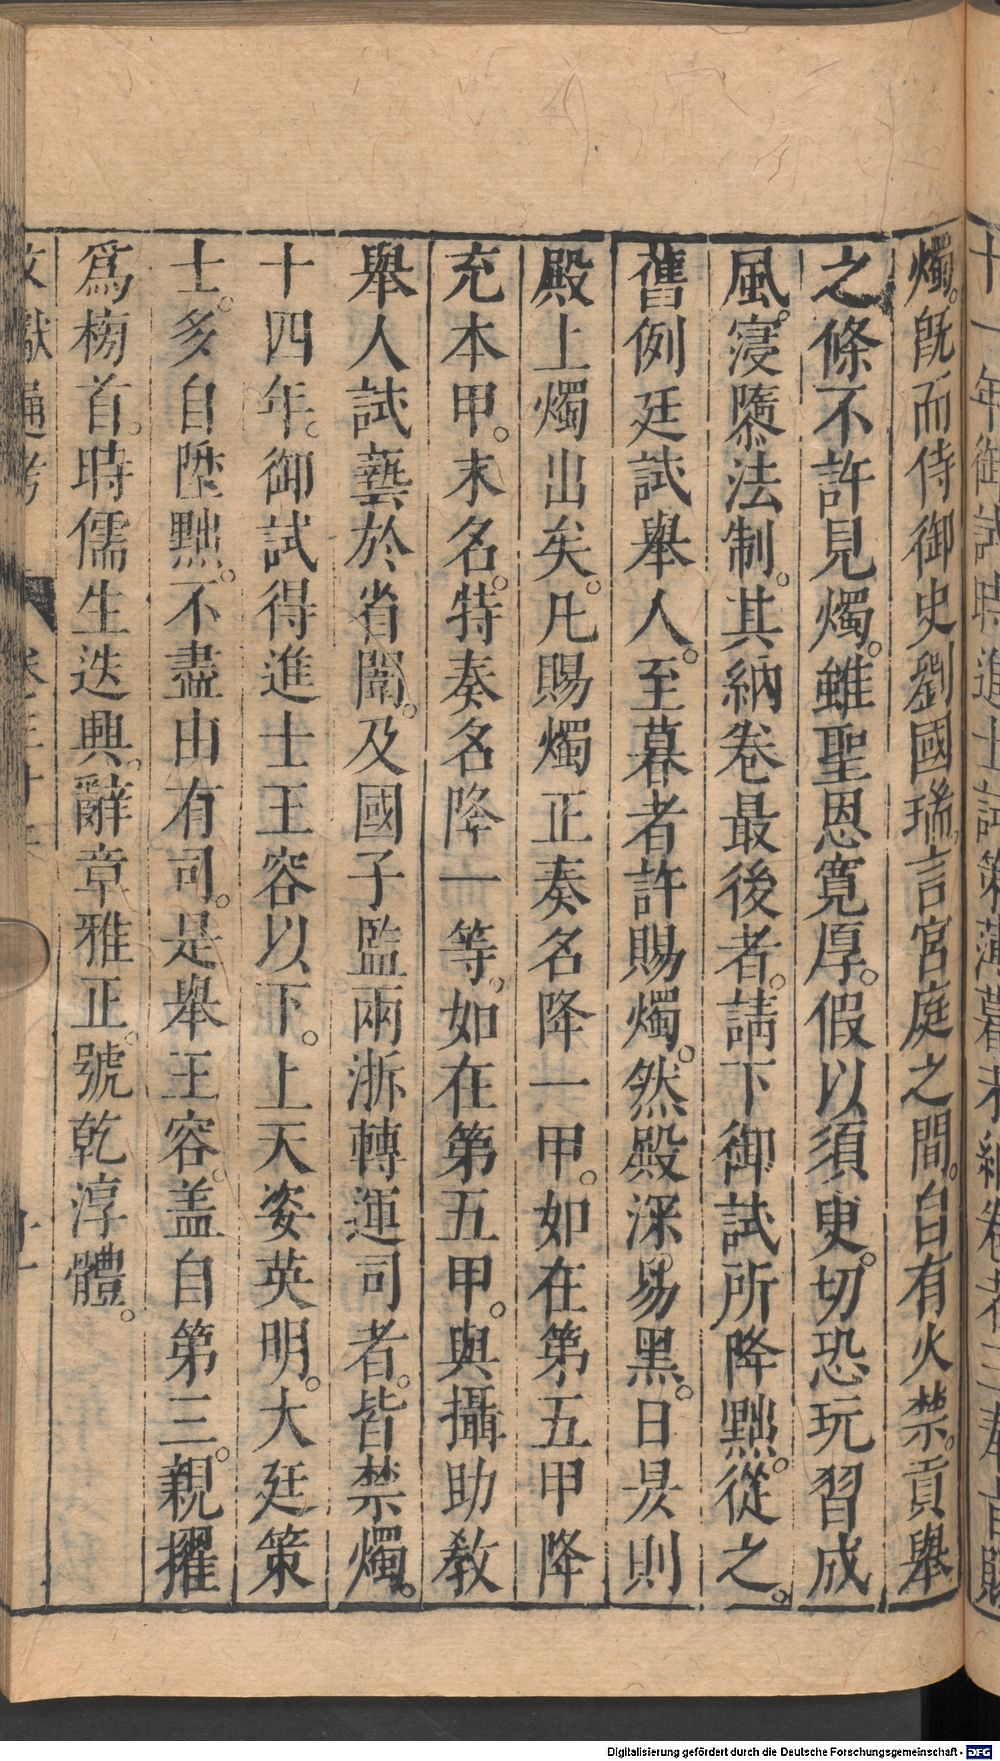 燭。旣而侍御史劉國瑞言宮庭之間。自有火禁。貢舉
之條不許見燭。雖聖恩寬厚。假以須臾。切恐玩習成
風。寖隳法制。其納卷最後者。請下御試所降黜。從之。
舊例廷試舉人。至暮者許賜燭。然殿深易黑。日昃則
殿上燭出矣。凡賜燭正奏名降一甲。如在第五甲降
充本甲。末名。特奏名降一等。如在第五甲。與攝助教
舉人試藝於省闈。及國子監兩浙轉運司者。皆禁燭。
十四年。御試得進士王容以下。上天姿英明。大廷策
士。多自陞黜。不盡由有司。是舉王容。盖自第三。親擢
爲榜首。時儒生迭興。辭章雅正。號乾淳體。
Digitalisierung gefördert durch die Deutsche Forschungsgemeinschaft - DFG